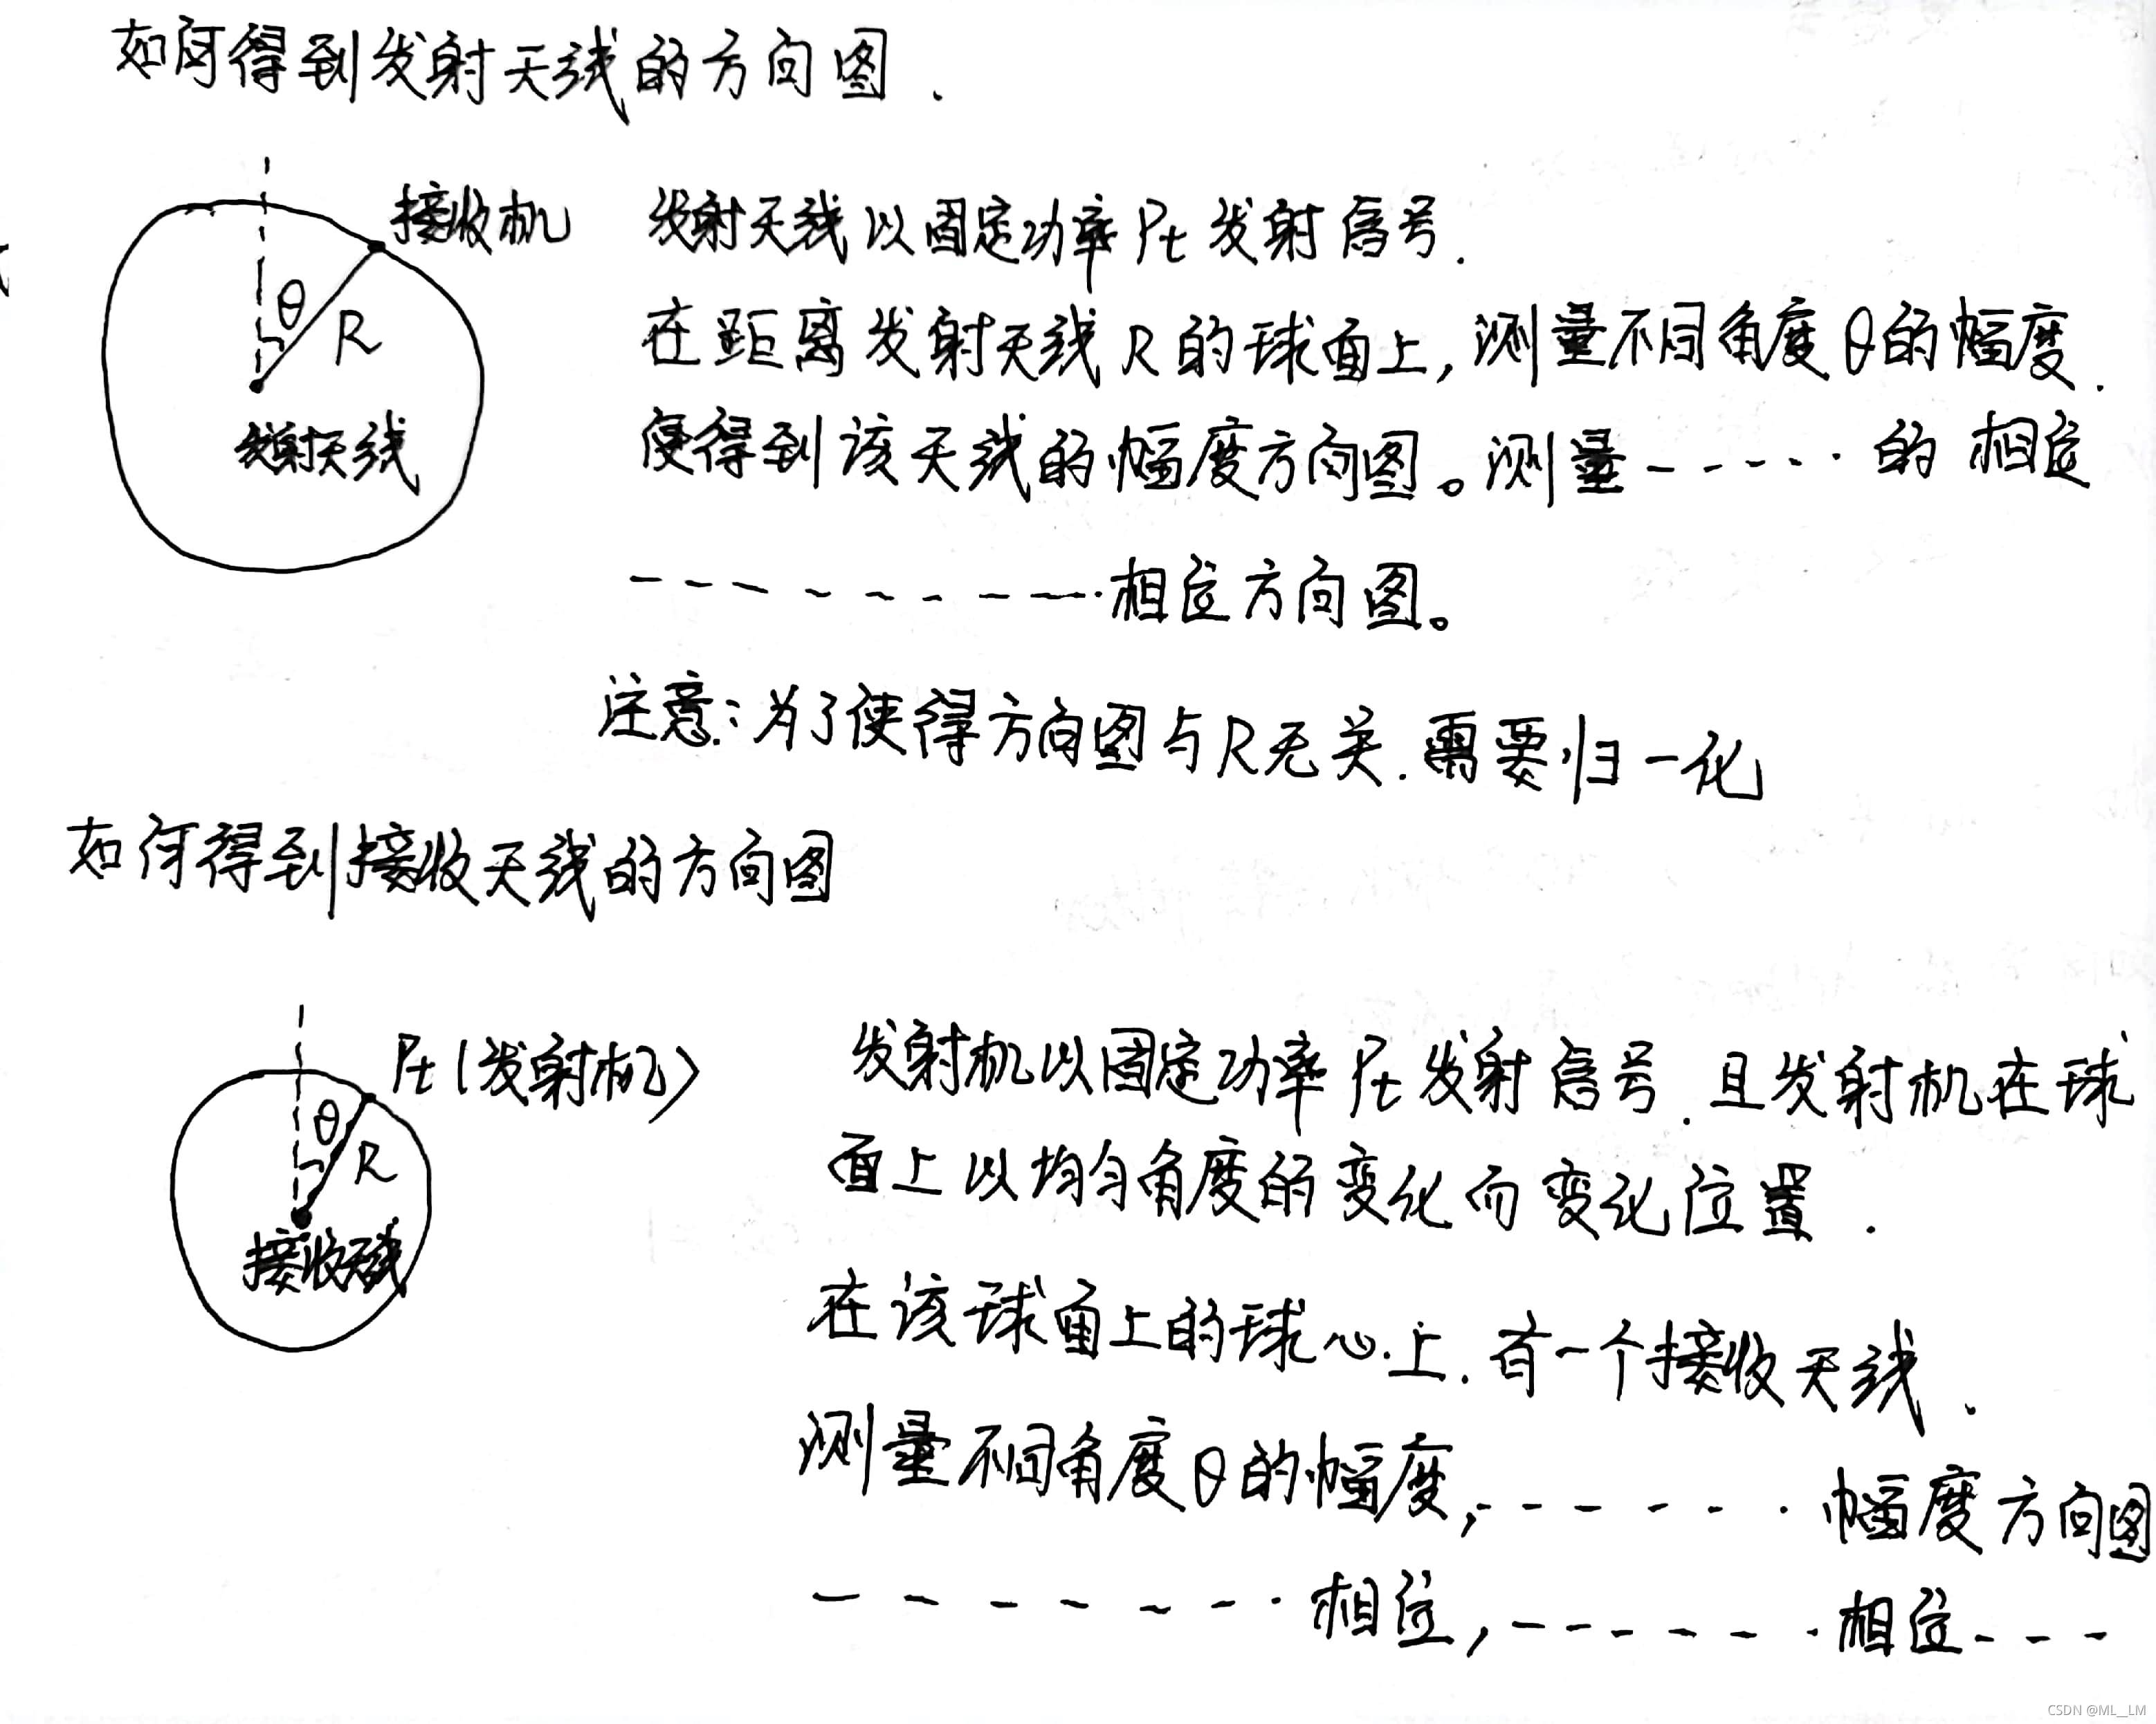 如何得到发射天线的方向图.
接收机
θ
R
发射天线
发射天线以固定功率Pt发射信号.
在距离发射天线R的球面上,测量不同角度θ的幅度.
便得到该天线的幅度方向图。测量-----·的相位
--------·相位方向图。
注意:为了使得方向图与R无关.需要归一化
如何得到接收天线的方向图
Pt(发射机)
θ
R
接收天线
发射机以固定功率Pt发射信号.且发射机在球
面上以均匀角度的变化而变化位置.
在该球面上的球心上.有一个接收天线.
测量不同角度θ的幅度,-----·幅度方向图
-------·相位,------·相位---
CSDN @ML__LM